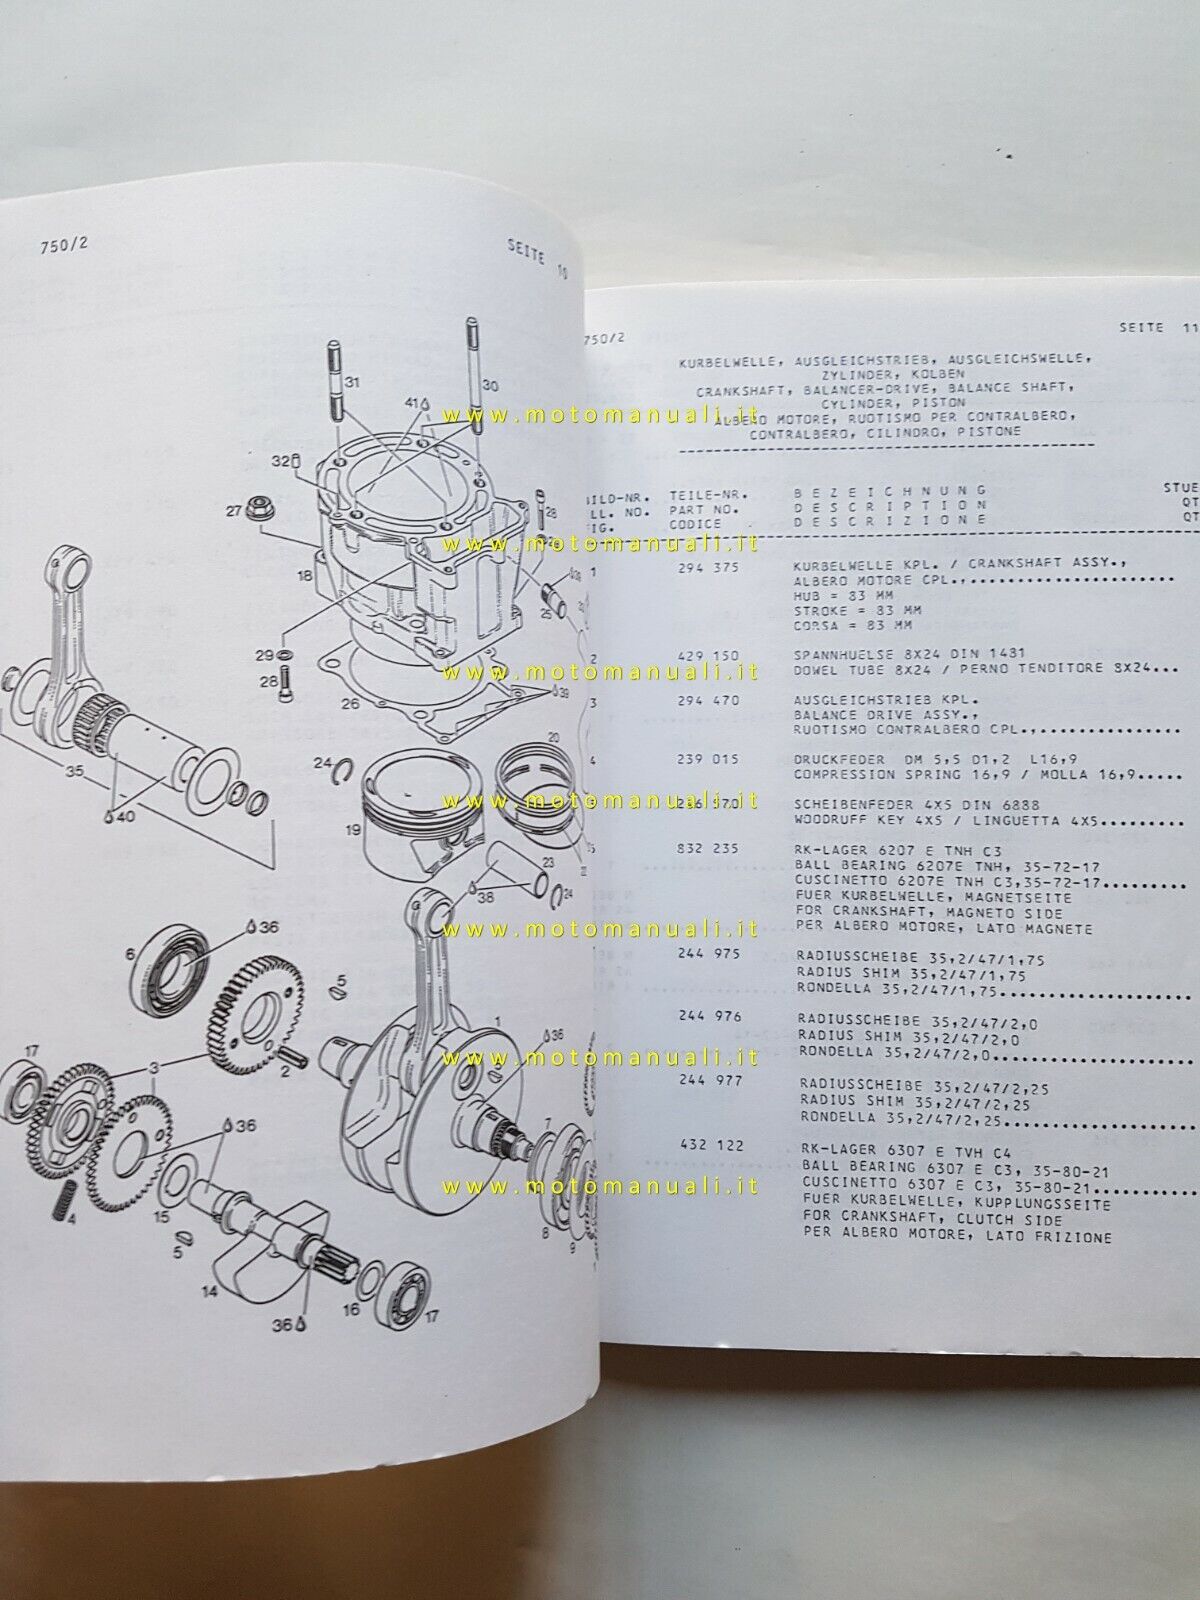 750/2
SEITE 10
31
30
41
32
27
28
18
25
29
28
26
39
24
20
35
40
19
23
24
38
6
36
5
1
36
17
3
2
36
7
4
15
5
8
9
14
16
17
36
750/2
SEITE 11
KURBELWELLE, AUSGLEICHSTRIEB, AUSGLEICHSWELLE,
ZYLINDER, KOLBEN
CRANKSHAFT, BALANCER-DRIVE, BALANCE SHAFT,
CYLINDER, PISTON
ALBERO MOTORE, RUOTISMO PER CONTRALBERO,
CONTRALBERO, CILINDRO, PISTONE
BILD-NR. TEILE-NR. BEZEICHNUNG STUE
ILL. NO. PART NO. DESCRIPTION QT
FIG. CODICE DESCRIZIONE QT
1 294 375 KURBELWELLE KPL. / CRANKSHAFT ASSY.,
ALBERO MOTORE CPL.,
HUB = 83 MM
STROKE = 83 MM
CORSA = 83 MM
2 429 150 SPANNHUELSE 8X24 DIN 1481
DOWEL TUBE 8X24 / PERNO TENDITORE 8X24...
3 294 470 AUSGLEICHSTRIEB KPL.
BALANCE DRIVE ASSY.,
RUOTISMO CONTRALBERO CPL.,
4 239 015 DRUCKFEDER DM 5,5 D1,2 L16,9
COMPRESSION SPRING 16,9 / MOLLA 16,9.....
246 570 SCHEIBENFEDER 4X5 DIN 6888
WOODRUFF KEY 4X5 / LINGUETTA 4X5.........
832 235 RK-LAGER 6207 E TNH C3
BALL BEARING 6207E TNH, 35-72-17
CUSCINETTO 6207E TNH C3,35-72-17.........
FUER KURBELWELLE, MAGNETSEITE
FOR CRANKSHAFT, MAGNETO SIDE
PER ALBERO MOTORE, LATO MAGNETE
244 975 RADIUSSCHEIBE 35,2/47/1,75
RADIUS SHIM 35,2/47/1,75
RONDELLA 35,2/47/1,75
244 976 RADIUSSCHEIBE 35,2/47/2,0
RADIUS SHIM 35,2/47/2,0
RONDELLA 35,2/47/2,0
244 977 RADIUSSCHEIBE 35,2/47/2,25
RADIUS SHIM 35,2/47/2,25
RONDELLA 35,2/47/2,25
432 122 RK-LAGER 6307 E TVH C4
BALL BEARING 6307 E C3, 35-80-21
CUSCINETTO 6307 E C3, 35-80-21
FUER KURBELWELLE, KUPPLUNGSSEITE
FOR CRANKSHAFT, CLUTCH SIDE
PER ALBERO MOTORE, LATO FRIZIONE
www.motomanuali.it
www.motomanuali.it
www.motomanuali.it
www.motomanuali.it
www.motomanuali.it
www.motomanuali.it
www.motomanuali.it